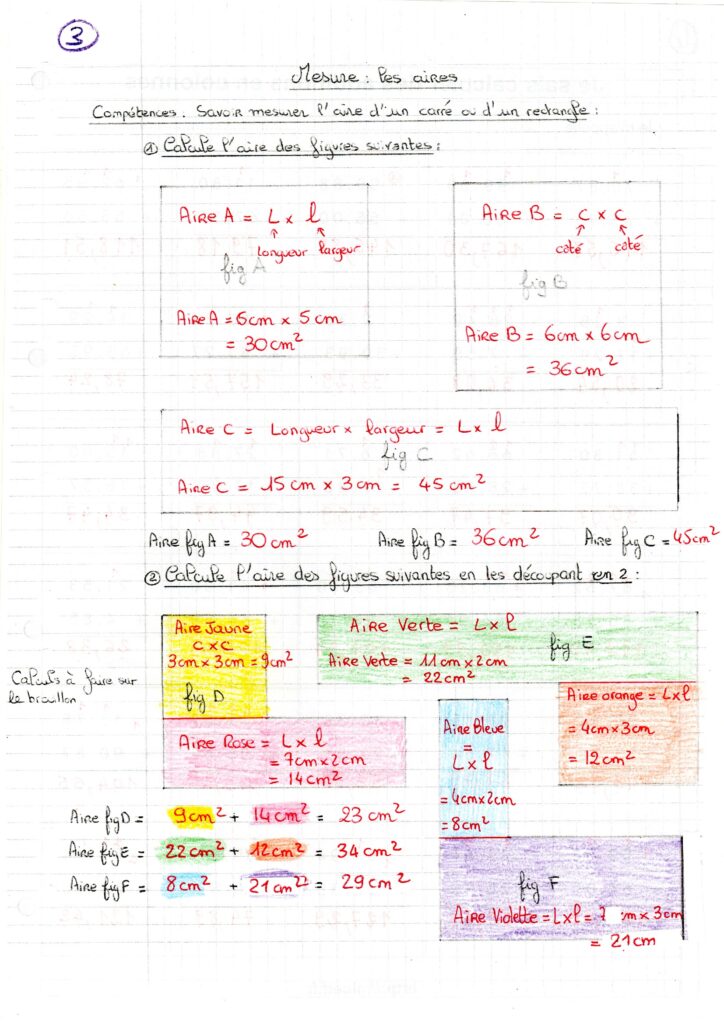 3
Mesure : les aires
Compétences : Savoir mesurer l'aire d'un carré ou d'un rectangle :
① Calcule l'aire des figures suivantes :
Aire A = L x l
longueur largeur
fig A
Aire A = 6cm x 5cm
= 30cm²
Aire B = c x c
côté côté
fig B
Aire B = 6cm x 6cm
= 36cm²
Aire C = Longueur x largeur = L x l
fig C
Aire C = 15cm x 3cm = 45cm²
Aire fig A = 30cm² Aire fig B = 36cm² Aire fig C = 45cm²
② Calcule l'aire des figures suivantes en les découpant en 2 :
Calculs à faire sur
le brouillon
Aire Jaune
C x C
3cm x 3cm = 9cm²
fig D
Aire Verte = L x l
fig E
Aire Verte = 11cm x 2cm
= 22cm²
Aire orange = L x l
= 4cm x 3cm
= 12cm²
Aire Rose = L x l
= 7cm x 2cm
= 14cm²
Aire Bleue
=
L x l
= 4cm x 2cm
= 8cm²
Aire fig D = 9cm² + 14cm² = 23cm²
Aire fig E = 22cm² + 12cm² = 34cm²
Aire fig F = 8cm² + 21cm²² = 29cm²
fig F
Aire Violette = L x l = 7 m x 3cm
= 21cm